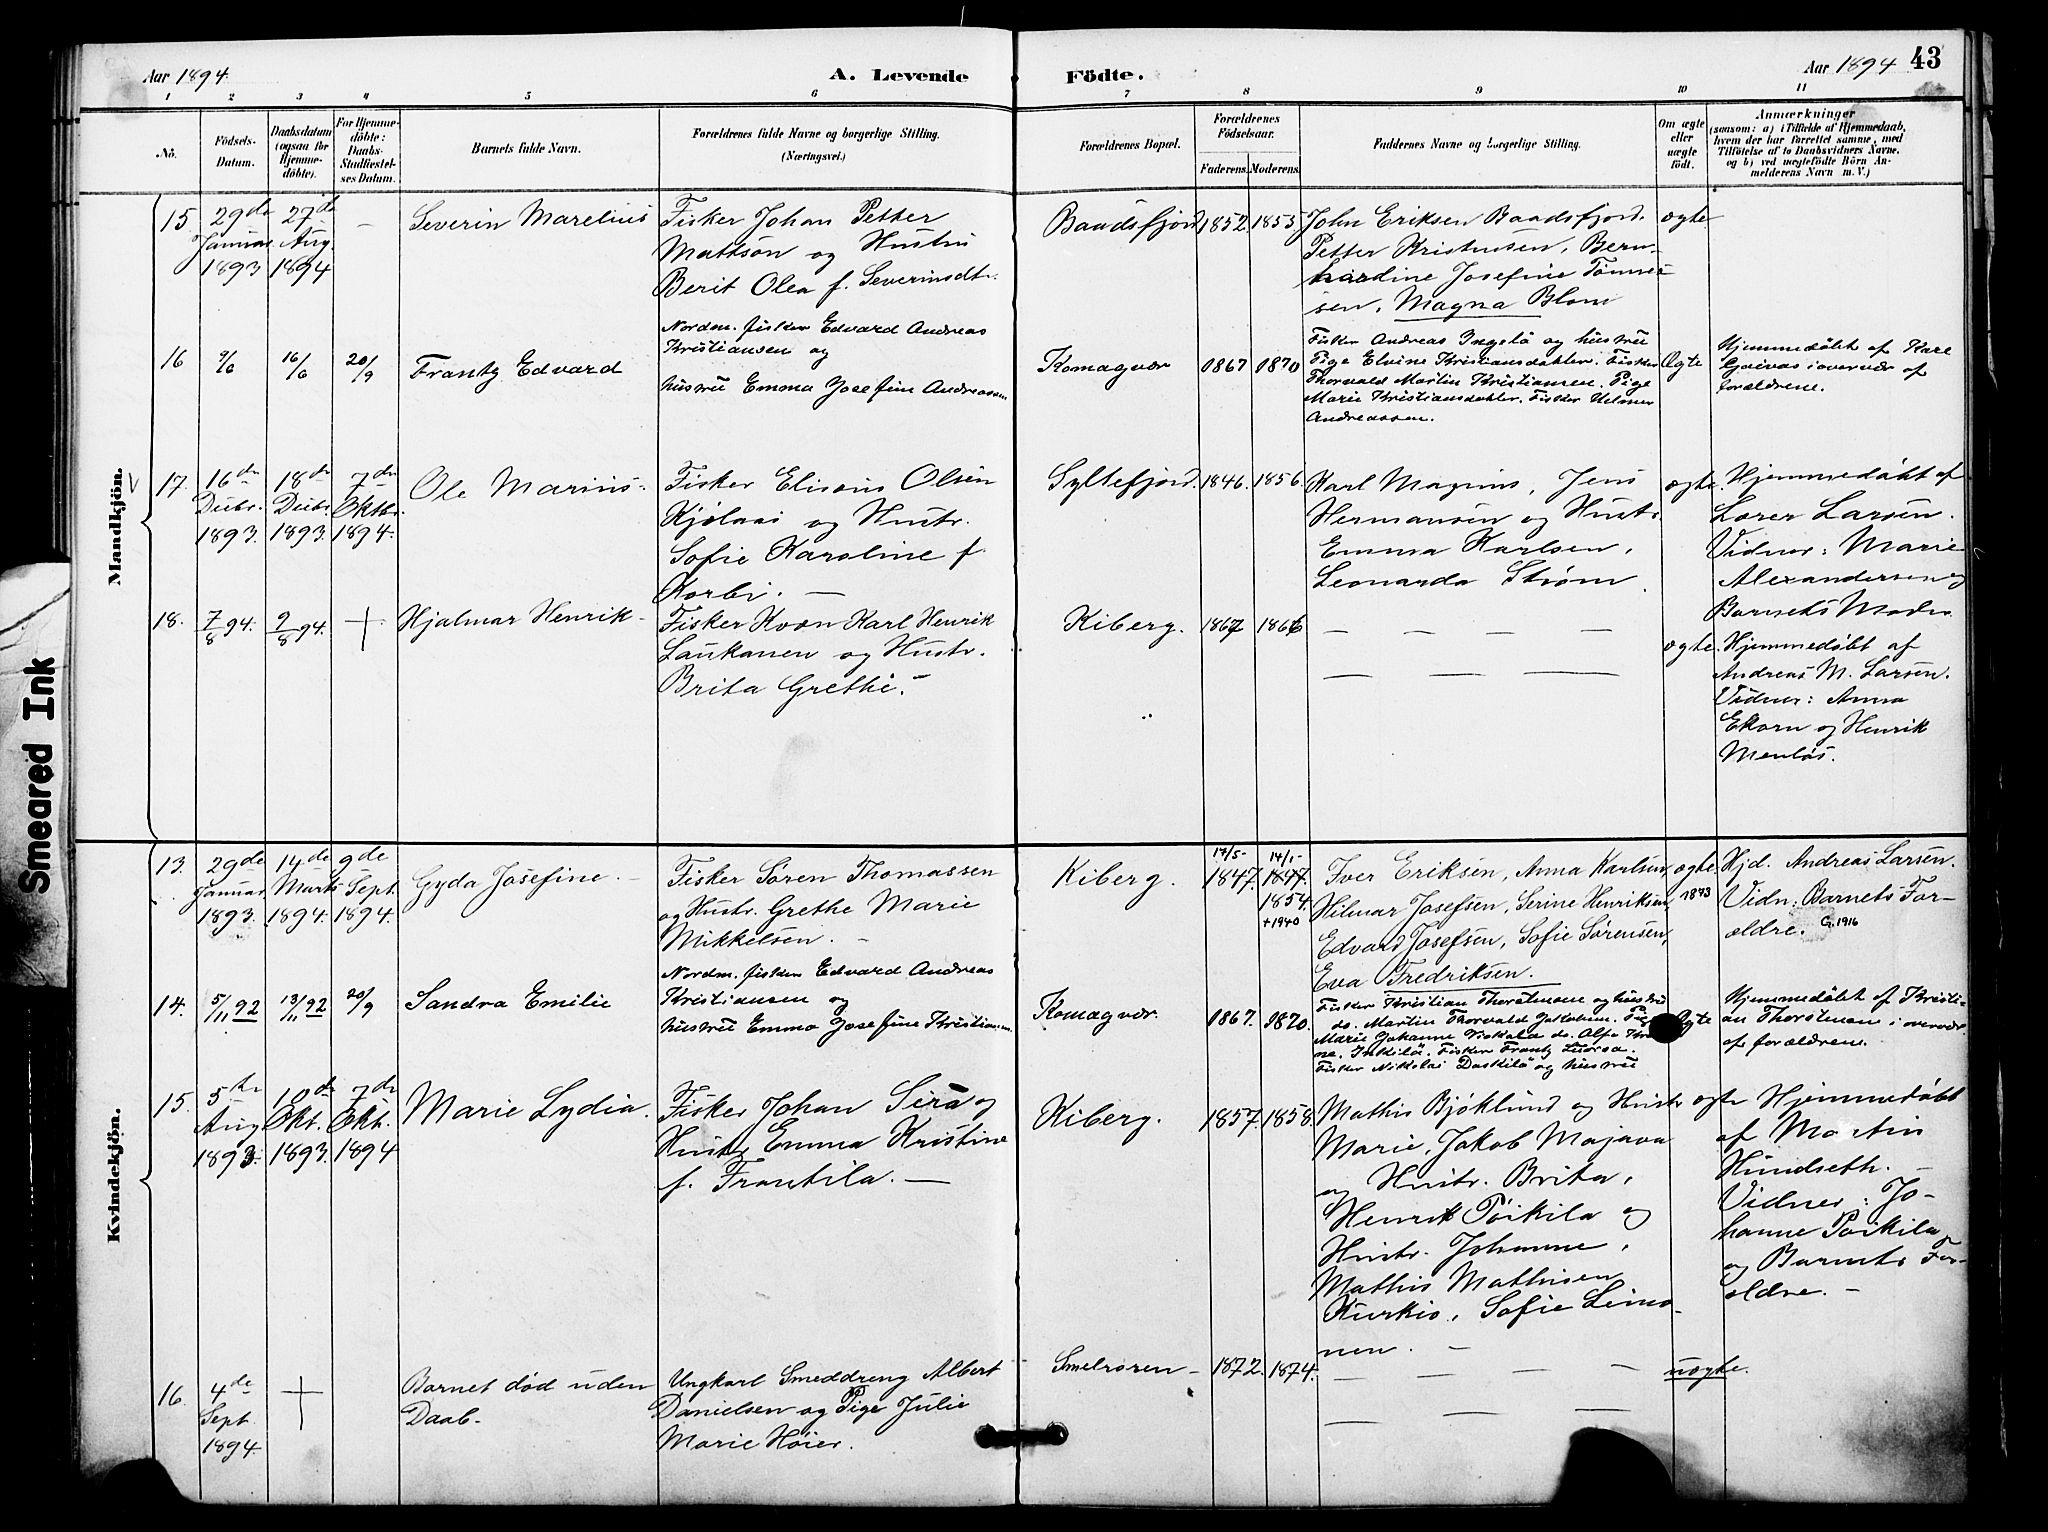 Aar 1894.
A. Levende
Födte.
Aar 1894
43
1 2 3 4 5 6 7 8 9 10 11
No.
Födsels-
Datum.
Daabsdatum
(ogsaa for
Hjemme-
döbte).
For Hjemme-
döbte:
Daabs-
Stadfæstel-
ses Datum.
Barnets fulde Navn.
Forældrenes fulde Navne og borgerlige Stilling.
(Næringsvei.)
Forældrenes Bopæl.
Forældrenes
Födselsaar.
Faderens. Moderens.
Faddernes Navne og borgerlige Stilling.
Om ægte
eller
uægte
födt.
Anmærkninger
(saasom: a) i Tilfælde af Hjemmedaab,
hvem der har forrettet samme, med
Tilföielse af to Daabsvidners Navne,
og b) ved uægtefödte Börn An-
melderens Navn m. V.)
Mandkjön.
15.
29de
Januar
1893
27de
Aug.
1894
–
Severin Marelius
Fisker Johan Petter
Mattson og Hustru
Berit Olea f. Severinsdtr.
Baadsfjord
1852.
1853
John Eriksen Baadsfjord.
Petter Kristensen, Bern-
hardine Josefine Tønnes-
sen, Magna Blom
ægte
16
9/6
16/6
20/9
Frantz Edvard
Nordm. fisker Edvard Andreas
Kristiansen og
hustru Emma Josefine Andreassen
Komagvær
1867
1870
Fisker Andreas Ingelö og hustru
Pige Elvine Kristiansdatter. Fisker
Thorvald Martin Kristiansen. Pige
Marie Kristiansdatter. Fisker Helmer
Andreassen.
Ægte
Hjemmedøbt af Karl
Gaivas i overvær af
forældrene.
17.
16de
Decbr.
1893.
18de
Decbr.
1893.
7de
Oktbr.
1894.
Ole Marius
Fisker Elisæus Olsen
Kjølaas og Hustr.
Sofie Karoline f.
Korbi. —
Syltefjord
1846.
1856.
Karl Magnus, Jens
Hermansen og Hustr.
Emma Karlsen,
Leonarda Strøm.
ægte.
Hjemmedøbt af
Lærer Larsen.
Vidner: Marie
Alexandersen og
Barnets Moder
18.
7/8 94.
9/8 94.
+
Hjalmar Henrik
Fisker Kvæn Karl Henrik
Laukanen og Hustr.
Brita Grethe. –
Kiberg.
1867
1866
— — — —
— — —
ægte.
Hjemmedøbt af
Andreas M. Larsen.
Vidner: Anna
Ekorn og Henrik
Menløs.
Kvindekjön.
13.
29de
Januar
1893.
14de
Marts
1894.
9de
Sept.
1894.
Gyda Josefine. –
Fisker Søren Thomassen
og Hustr. Grethe Marie
Mikkelsen. –
Kiberg.
1847.
14/1-
1847.
1854.
+1940
Iver Eriksen, Anna Karlsen,
Hilmar Josefsen, Serine Henriksen,
Edvard Josefsen, Sofie Sørensen,
Eva Fredriksen.
ægte
1873
Hjd. Andreas Larsen.
Vidn: Barnets For-
ældre. G. 1916
14.
5/11 92
13/11 92
20/9
Sandra Emilie
Nordm. fisker Edvard Andreas
Kristiansen og
hustru Emma Josefine Kristiansen
Komagvær.
1867.
1870.
Fisker Kristian Thorstensen og hustru
do. Martin Thorvald Jakobsen. Pige
Marie Johanne
Fisker Frantz
Fisker Nikolai og hustru
Ægte
Hjemmedøbt af Kristi-
an Thorstensen i overvær
af forældrene.
15.
5te
Aug
1893.
10de
Okt.
1893.
7de
Okt.
1894
Marie Lydia.
Fisker Johan Sirä og
Hustr. Emma Kristine
f. Frantila. —
Kiberg.
1857.
1858.
Mathis Bjøklund og Hustr.
Marie, Jakob Majava
og Hustr. Brita,
Henrik Pöikila og
Hustr. Johanne,
Mathis Mathisen
Kurkio, Sofie Leino-
nen. –
ægte
Hjemmedøbt
af Martin
Hundseth. –
Vidner: Jo-
hanne Poikila
og Barnets For-
ældre. –
16.
4de
Sept.
1894.
+
Barnet død uden
Daab.
Ungkarl Smeddreng Albert
Danielsen og Pige Julie
Marie Høier.
Smelroren –
1872.
1874.
— — — —
— — —
uægte.
Smeared Ink